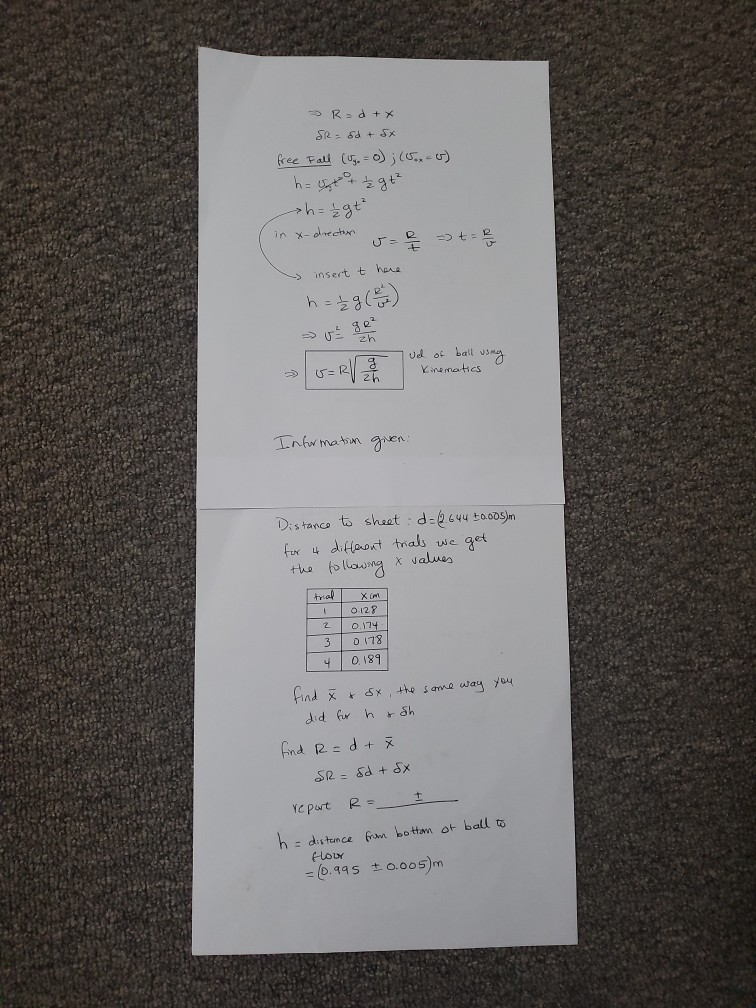 ⇒ R = d + x
δR = δd + δx
free Fall (υy₀ = 0) ; (υ₀ₓ = υ)
h = υy₀t⁰ + 1/2 gt²
→ h = 1/2 gt²
in x-direction υ = R/t ⇒ t = R/υ
→ insert t here
h = 1/2 g (R²/υ²)
⇒ υ² = gR²/2h
⇒ υ = R√(g/2h) vel of ball using
kinematics
Information given:
Distance to sheet : d = (2.644 ± 0.005)m
for 4 different trials we get
the following x values
trial x (m
1 0.128
2 0.174
3 0.178
4 0.189
find x̄ & δx, the same way you
did for h & δh
find R = d + x̄
δR = δd + δx
report R = ___±___
h = distance from bottom of ball to
floor
= (0.995 ± 0.005)m